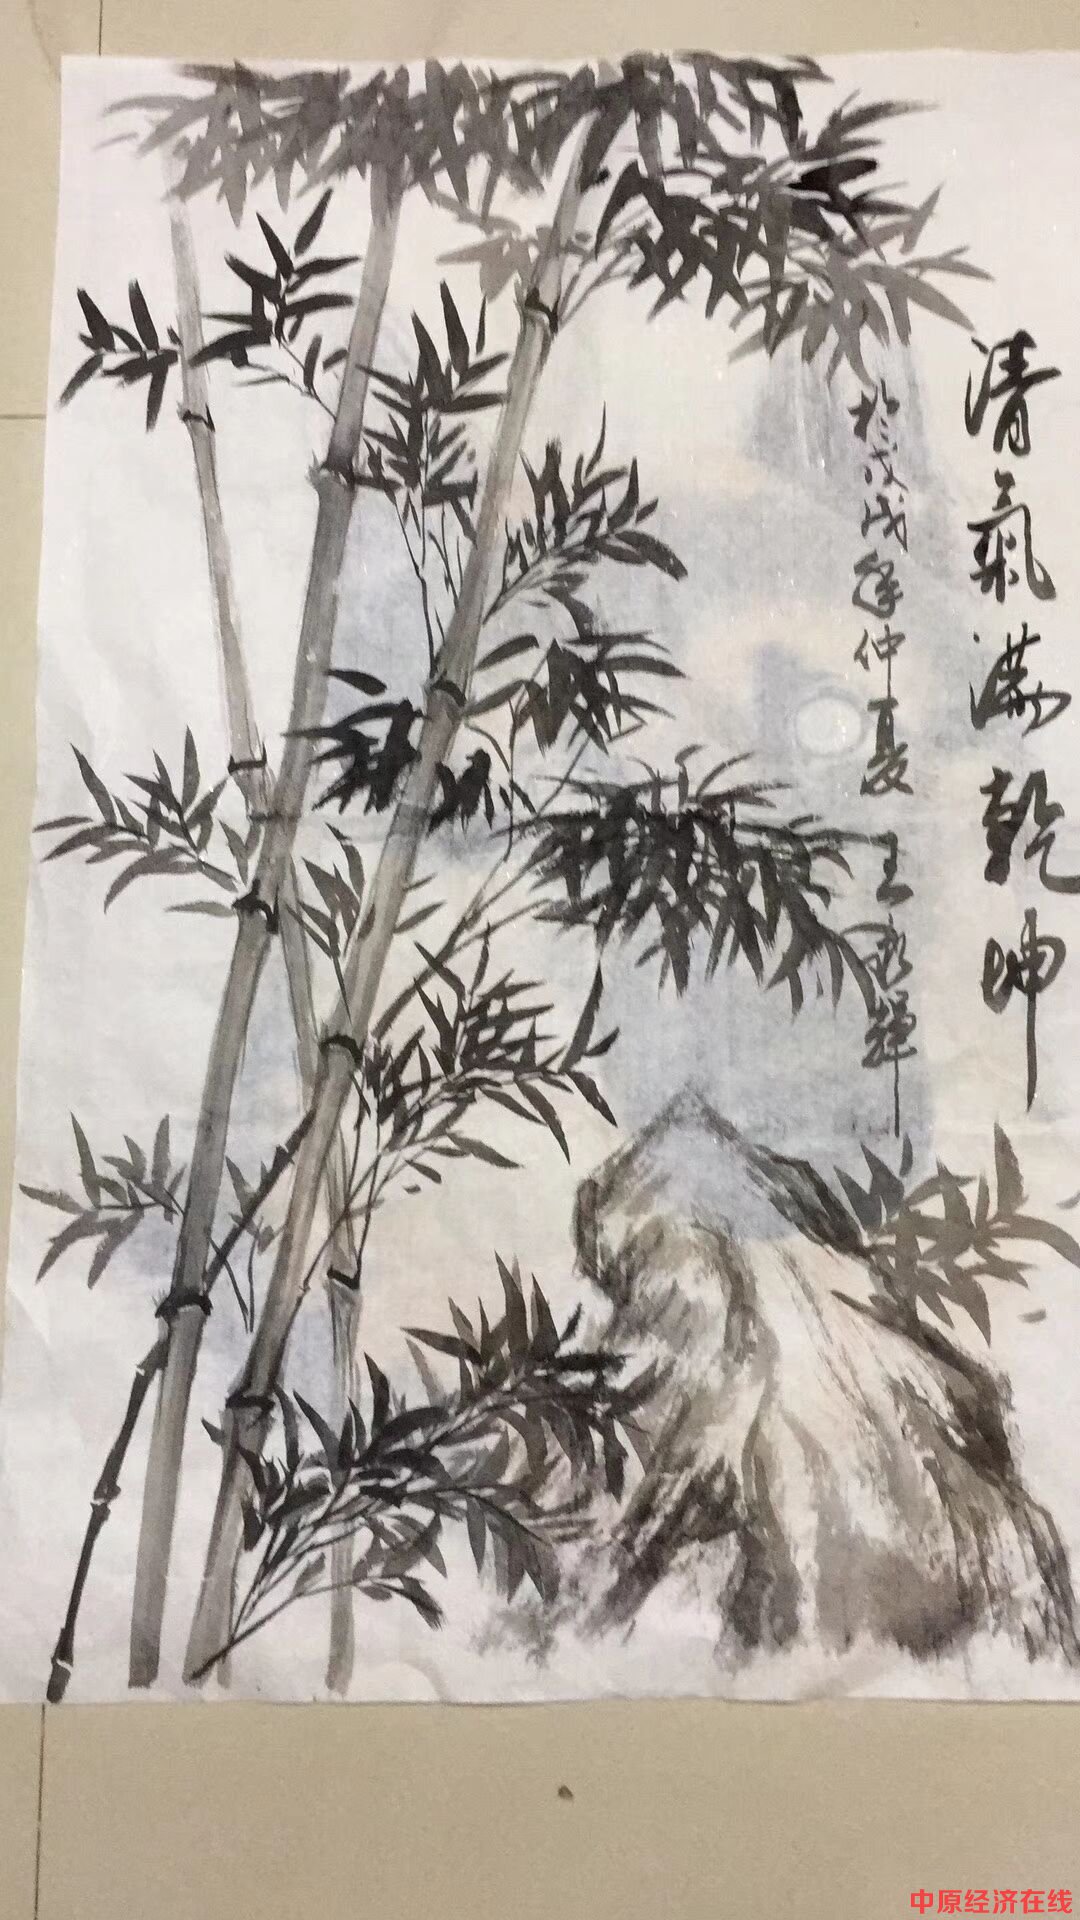 清氣滿乾坤
於戊戌年仲夏 王輝
中原经济在线